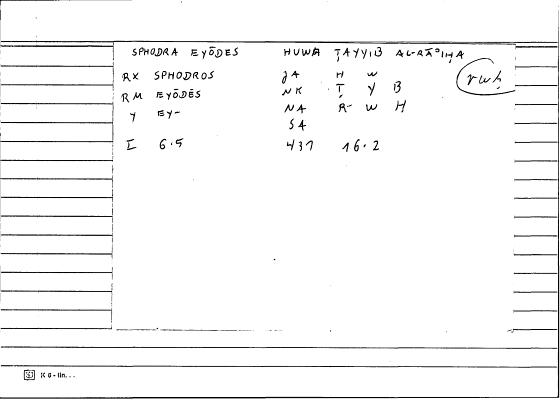 SPHODRA EYŌDES HUWA ṬAYYIB AL-RĀʾIḤA
RX SPHODROS JA H W rwḥ
RM EYŌDĒS NK Ṭ Y B
Y EY- NA R- W H
SA
I 6.5 431 16.2
K 6-lin...